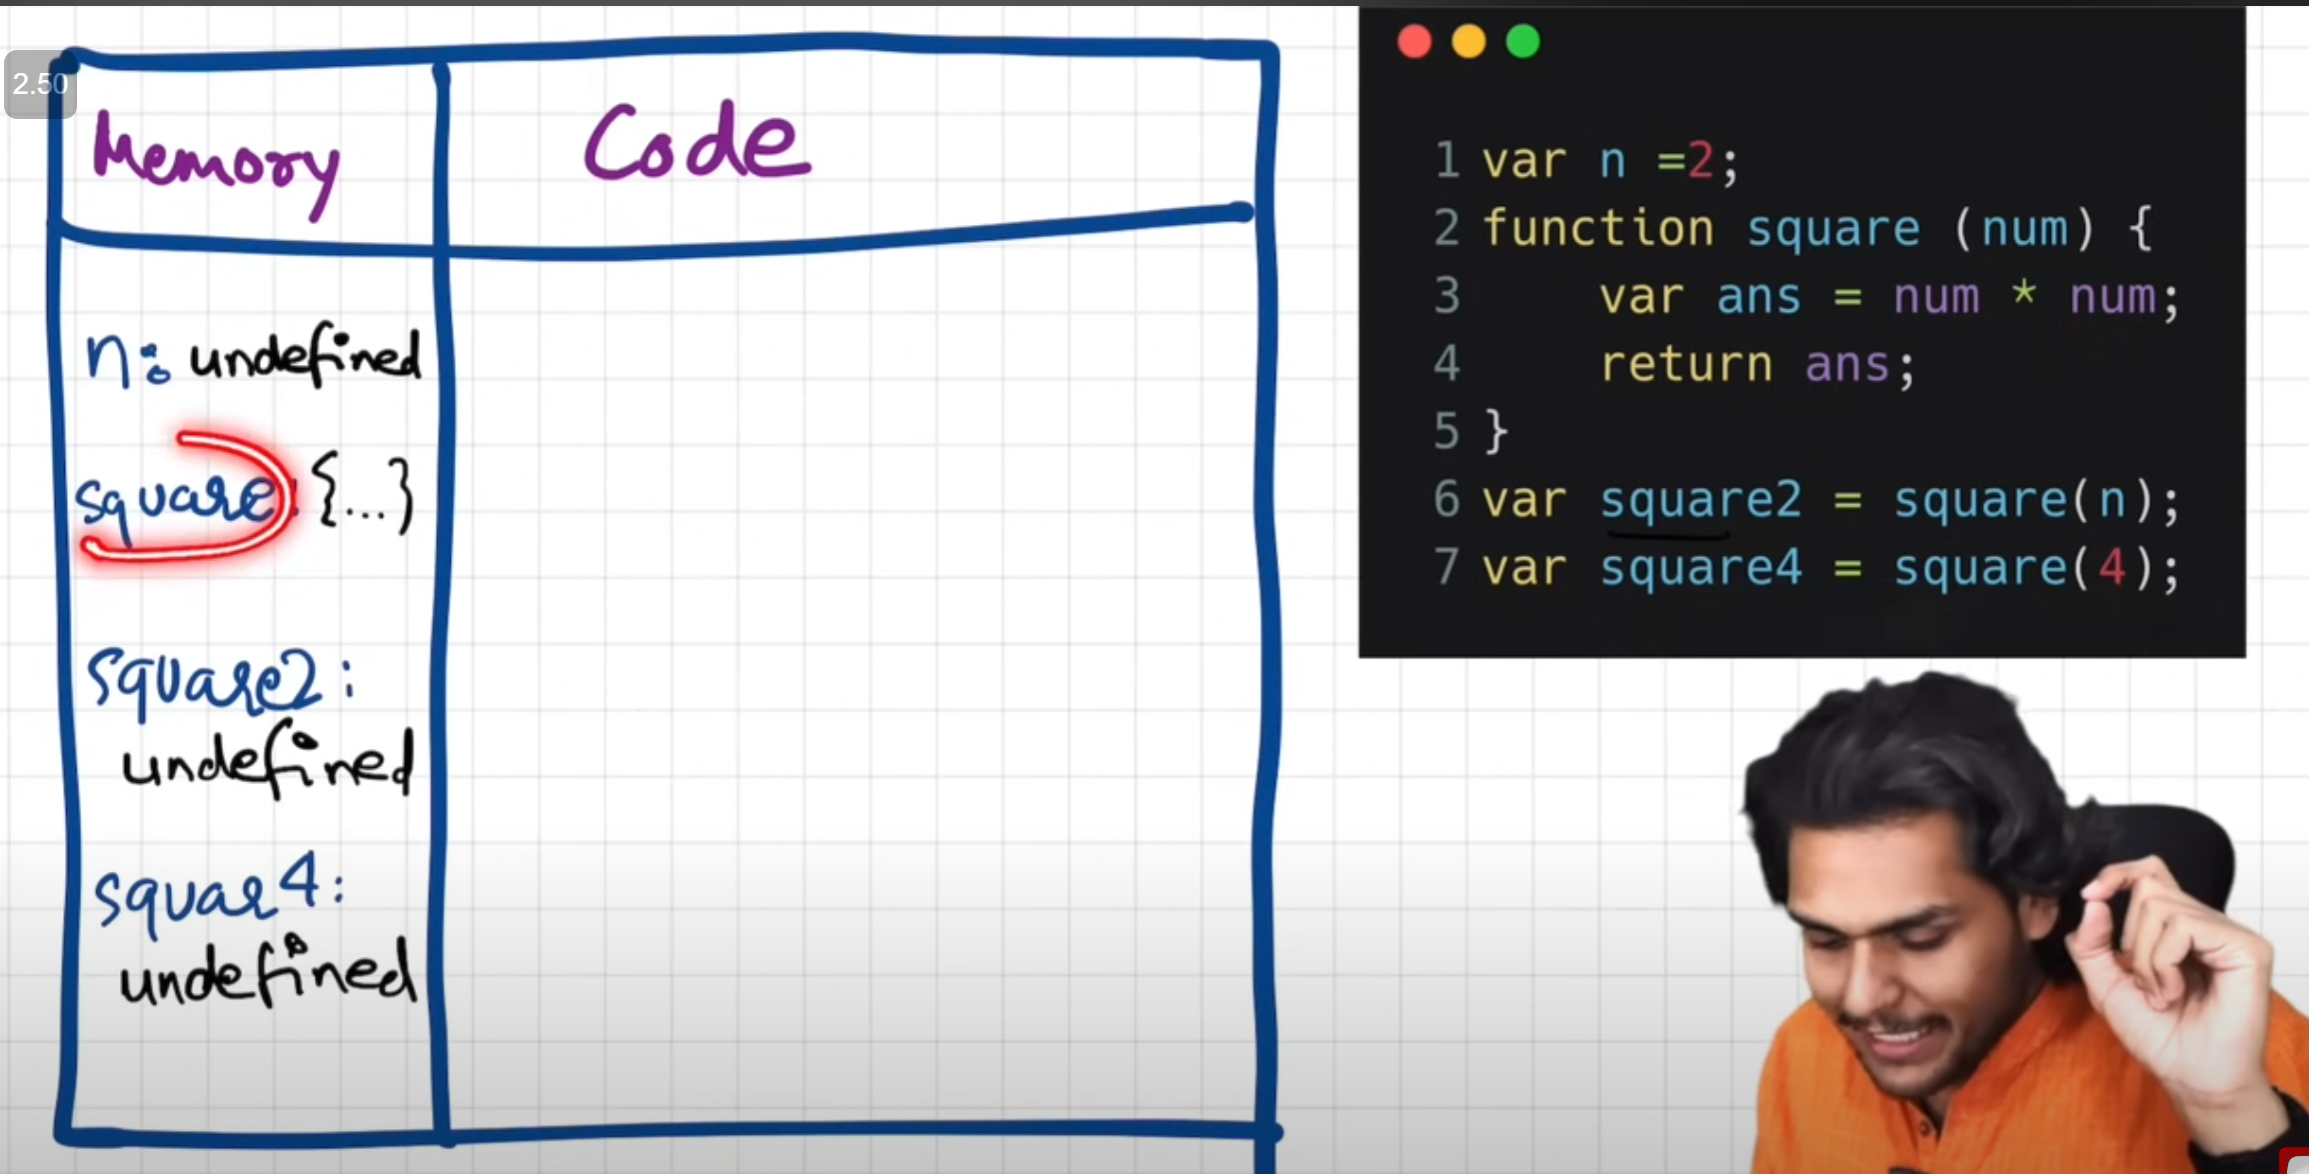 2.50
Memory
Code
n: undefined
square: {...}
square2:
undefined
squar4:
undefined
1 var n =2;
2 function square (num) {
3 var ans = num * num;
4 return ans;
5 }
6 var square2 = square(n);
7 var square4 = square(4);